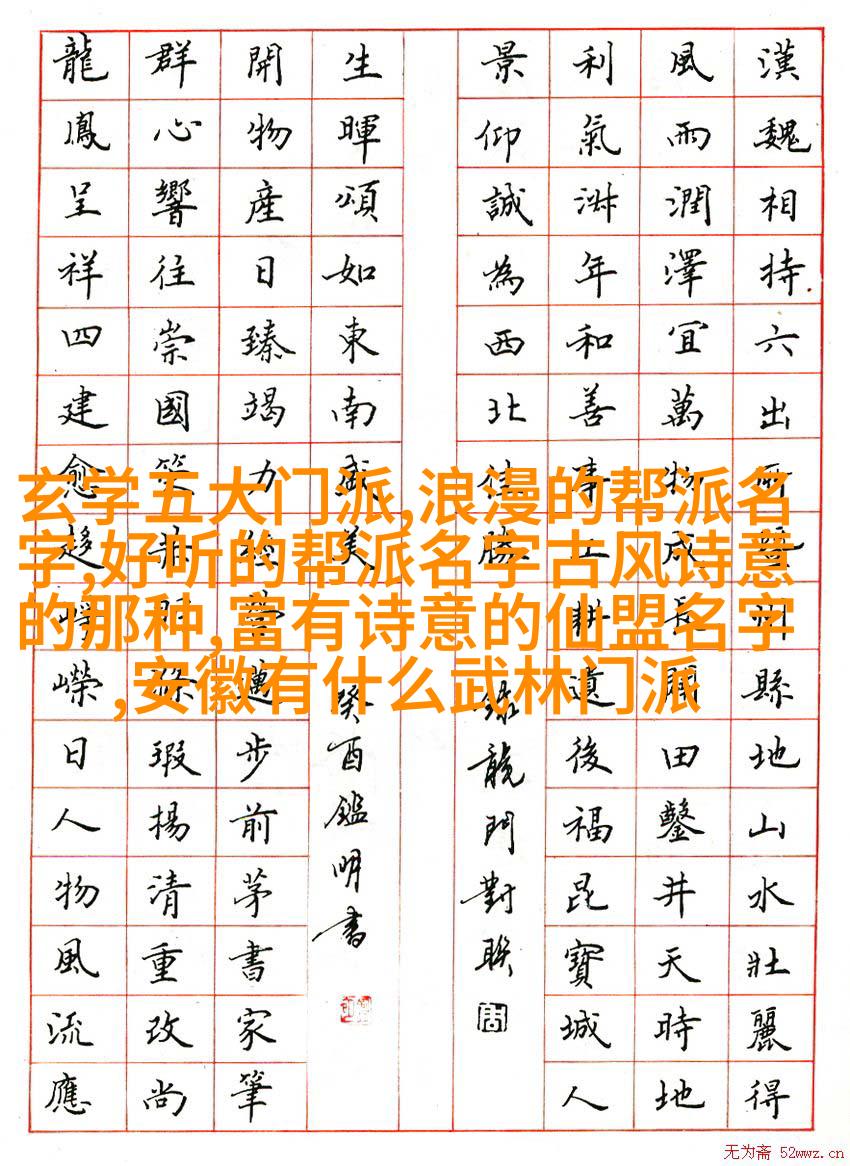 漢魏相持六出縣地山水壯麗得
風雨潤澤宜萬物成長闢田鑿井天時地
利氣年和善事工耕遺後福昆寶城人
景仰誠為西北勝
錄龍門對聯
生暉頌如東南盛美
癸酉鑑明書
開物產日臻竭力經營邁步前茅書家筆
群心響往崇國瑕揚清重改尚
龍鳳呈祥四建愈趨崢嶸日人物風流應
玄学五大门派,浪漫的帮派名
字,好听的帮派名字古风诗意
的那种,富有诗意的仙盟名字
,安徽有什么武林门派
无为斋 52wwz.cn